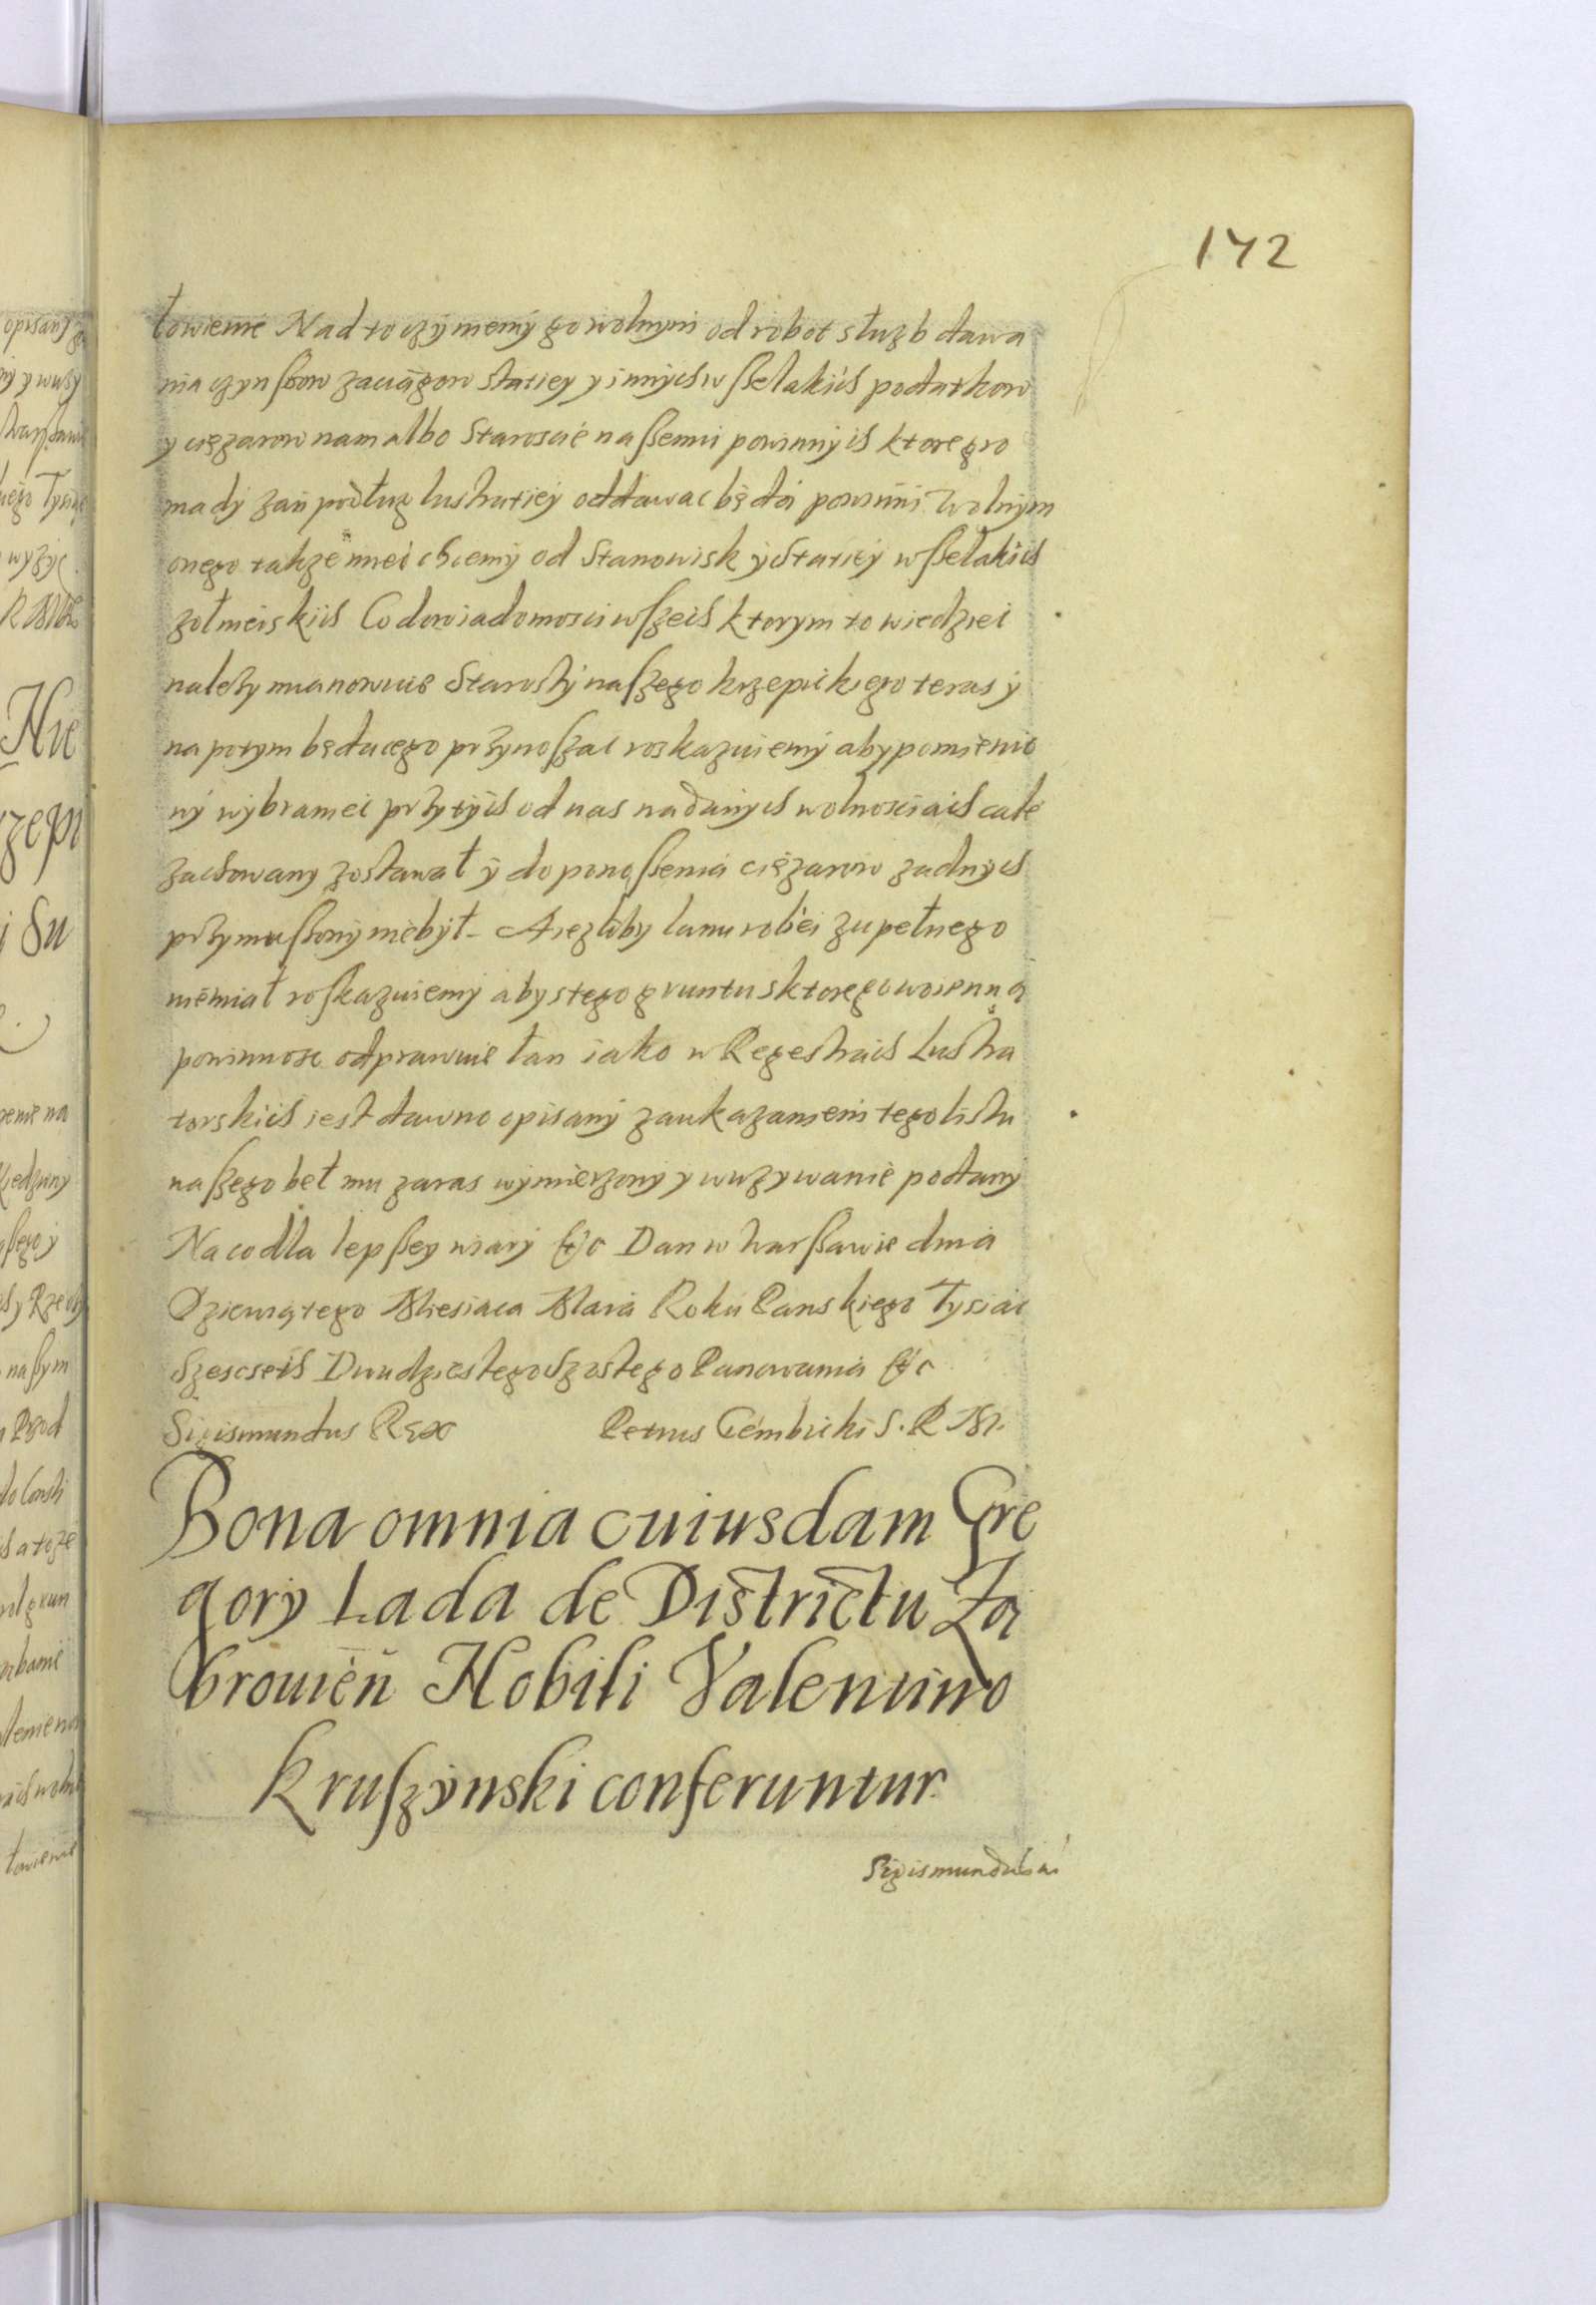 172
łowienie Nad to czÿniemÿ go wolnym od robot słuzb dawa
nia czynszow zaciągow staciey y innÿch wszelakich podatkow
y ciężarow nam albo Staroscie naszemu powinnÿch ktore gro
madÿ zań podług lustraciey oddawac będą powinni Wolnÿm
onego takze miec chcemÿ od Stanowisk ÿ Staciey wszelakich
zołnierskich Co do wiadomosci wszech ktorym to wiedziec
nalezy mianowicie Starostÿ naszego krzepickiego teras ÿ
na potym będącego przynosząc roskazuiemÿ aby pomienio
nÿ wÿbraniec przy tÿch od nas nadanÿch wolnosciach cale
zachowany zostawał ÿ do ponoszenia ciężarow zadnÿch
przymuszonÿ nie bÿł. A iezliby łanu roliei zupełnego
nie miał roskazuiemÿ aby s tego gruntu s ktorego woienną
powinnosc odprawuie łan iako w Regestrach Lustra
torskich iest dawno opisanÿ za ukazaniem tego listu
naszego beł mu zaras wÿmierzonÿ y w uzywanie podany
Na co dla lepszey wiarÿ &c Dan w Warszawie dnia
Dziewiątego Miesiaca Maia Roku Panskiego Tysiac
Szescseth Dwudziestego Szostego Panowania &c
Sigismundus Rex Petrus Gembicki S. R. M.
Bona omnia cuiusdam Gre
gorÿ Lada de Districtu Za
browień Nobili Valentino
Kruszÿnski conferuntur.
Sigismundus